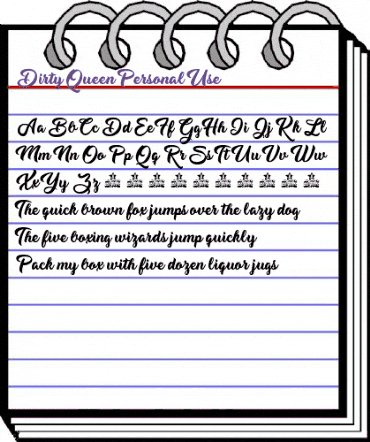 Dirty Queen Personal Use
Aa Bb Cc Dd Ee Ff Gg Hh Ii Jj Kk Ll
Mm Nn Oo Pp Qq Rr Ss Tt Uu Vv Ww
Xx Yy Zz
The quick brown fox jumps over the lazy dog
The five boxing wizards jump quickly
Pack my box with five dozen liquor jugs